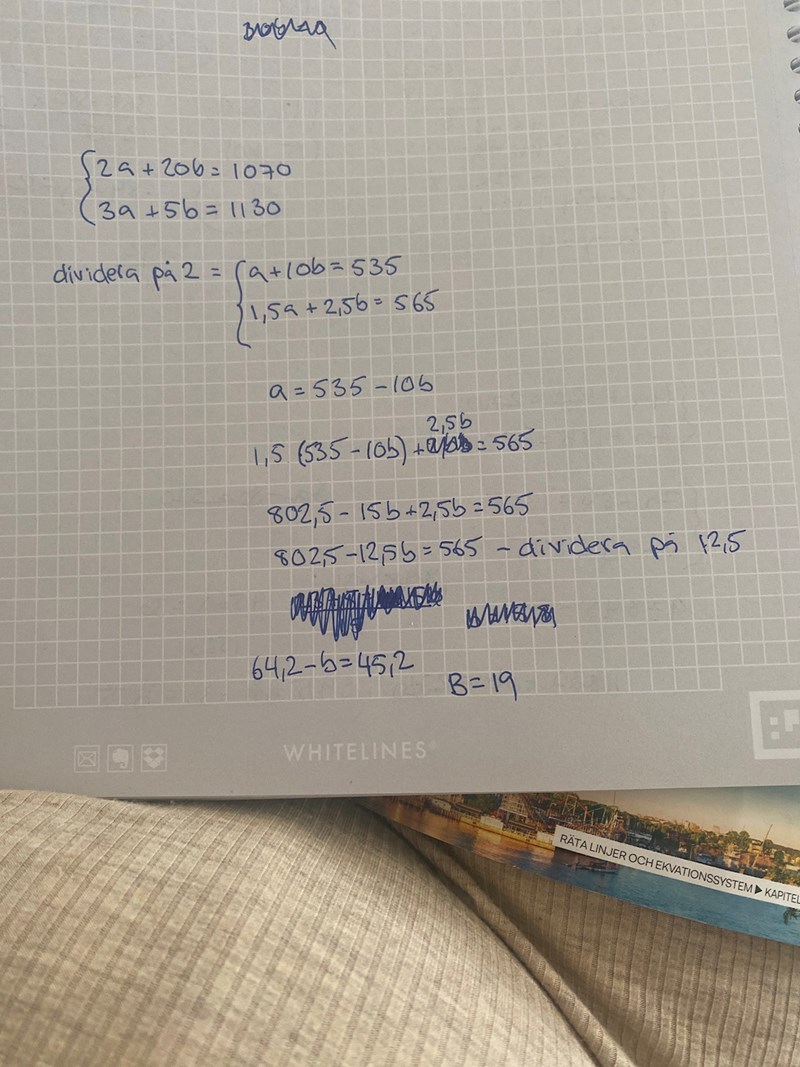 2a + 20b = 1070
3a + 5b = 1130
dividera på 2 = a + 10b = 535
1,5a + 2,5b = 565
a = 535 - 10b
2,5b
1,5 (535 - 10b) + = 565
802,5 - 15b + 2,5b = 565
802,5 - 12,5b = 565 - dividera på 12,5
64,2 - b = 45,2
B = 19
WHITELINES®
RÄTA LINJER OCH EKVATIONSSYSTEM ▶ KAPITEL